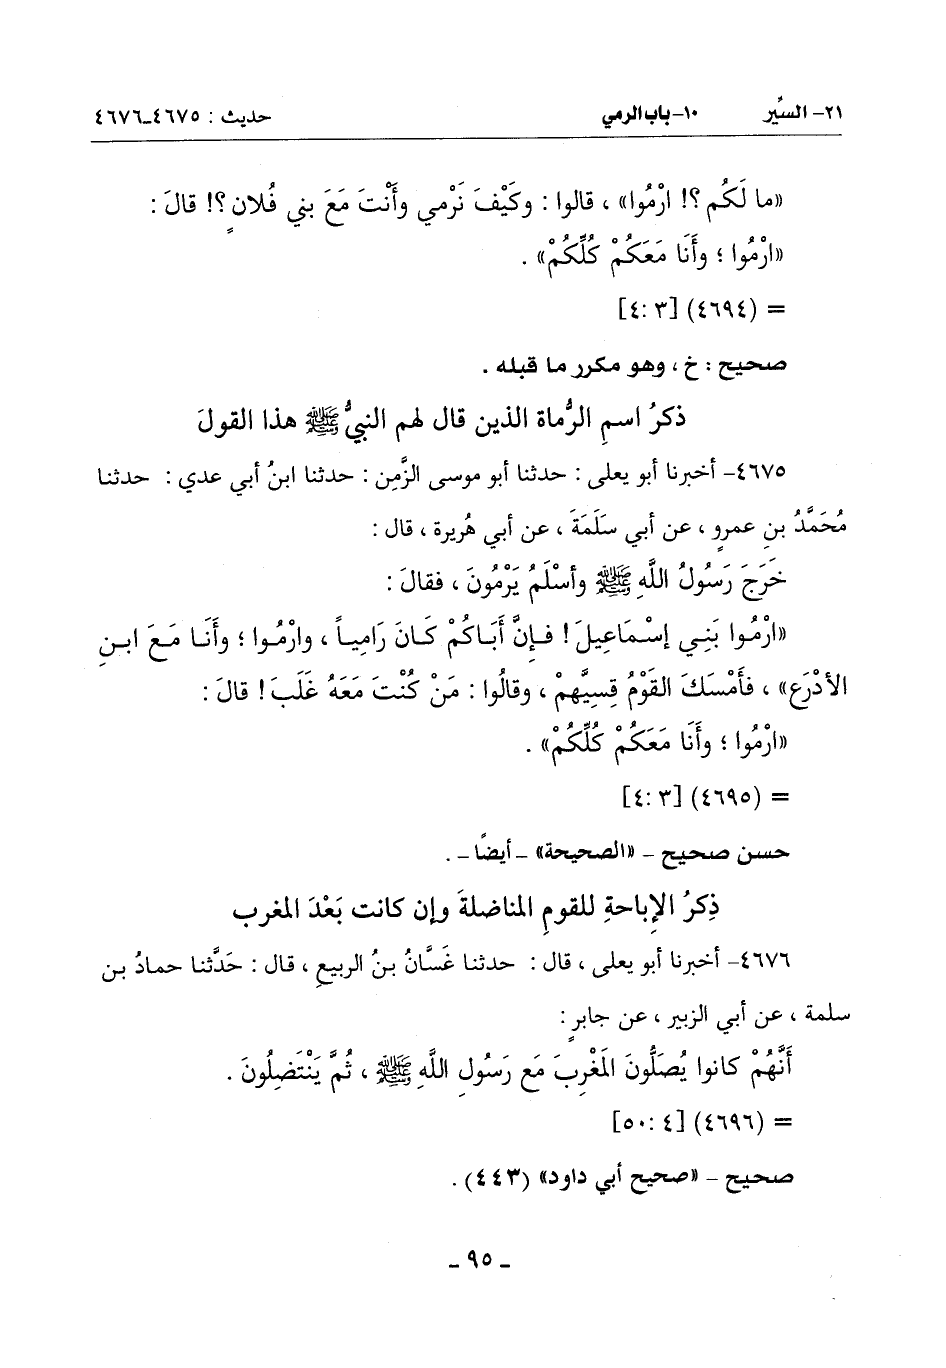 ٢١- السِّيَر ١٠-باب الرمي حديث : ٤٦٧٥-٤٦٧٦
«ما لَكُم ؟! ارْمُوا» ، قالوا : وكَيْفَ نَرْمي وأَنْتَ مَعَ بني فُلانٍ ؟! قالَ :
«ارْمُوا ؛ وأَنَا مَعَكُمْ كُلِّكُمْ» .
= (٤٦٩٤) [٣ :٤]
صحيح : خ ، وهو مكرر ما قبله .
ذكرُ اسمِ الرُّماة الذين قال لهم النبيُّ ﷺ هذا القولَ
٤٦٧٥- أخبرنا أبو يعلى : حدثنا أبو موسى الزَّمِن : حدثنا ابنُ أبي عدي : حدثنا
مُحَمَّدُ بنِ عمرٍو ، عن أبي سَلَمَةَ ، عن أبي هُريرة ، قال :
خَرَجَ رَسُولُ اللَّهِ ﷺ وأسْلَمُ يَرْمُونَ ، فقالَ :
«ارْمُوا بَنِي إسْمَاعِيلَ ! فإنَّ أَبَاكُمْ كَانَ رَامِياً ، وارْمُوا ؛ وأَنَا مَعَ ابنِ
الأدْرَعِ» ، فَأَمْسَكَ القَوْمُ قِسِيَّهمْ ، وقالُوا : مَنْ كُنْتَ مَعَهُ غَلَبَ ! قالَ :
«ارْمُوا ؛ وأَنَا مَعَكُمْ كُلِّكُمْ» .
= (٤٦٩٥) [٣ :٤]
حسن صحيح - «الصحيحة» - أيضًا - .
ذِكرُ الإِباحةِ للقومِ المناضلةَ وإن كانت بَعْدَ المغرب
٤٦٧٦- أخبرنا أبو يعلى ، قال : حدثنا غَسَّانُ بنُ الربيع ، قال : حَدَّثنا حمادُ بن
سلمة ، عن أبي الزبير ، عن جابرٍ :
أَنَّهُمْ كانوا يُصَلُّونَ المَغْرِبَ مَع رَسُولِ اللَّهِ ﷺ ، ثُمَّ يَنْتَضِلُونَ .
= (٤٦٩٦) [٤ :٥٠]
صحيح - «صحيح أبي داود» (٤٤٣) .
- ٩٥ -